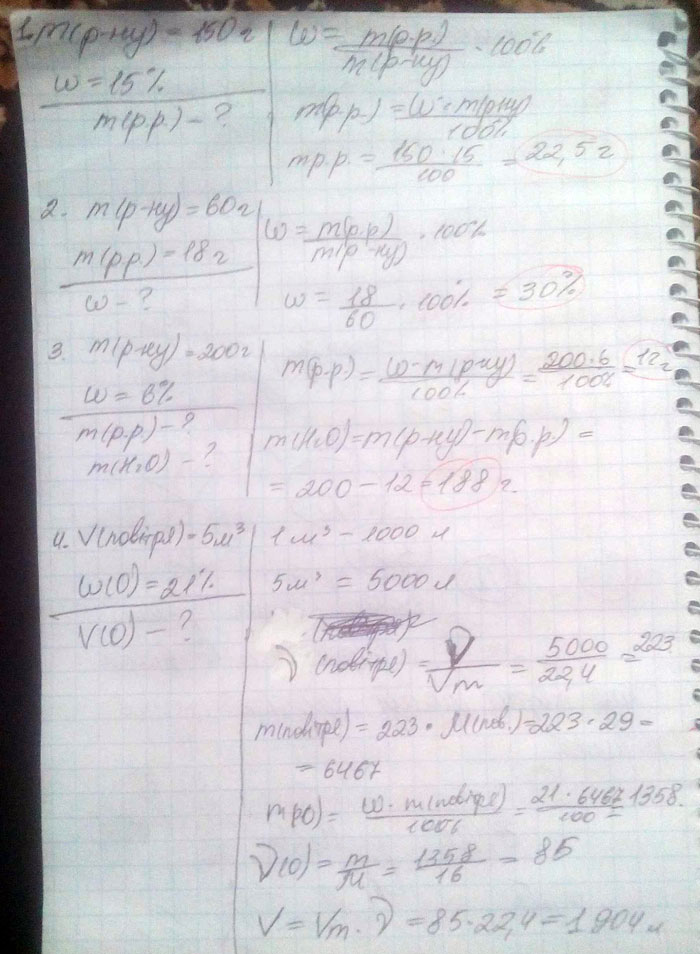 1. m(р-ну) = 150 г
ω = 15%
m(р.р.) - ?
ω = m(р.р.) / m(р-ну) · 100%
m(р.р.) = ω · m(р-ну) / 100%
m р.р. = 150 · 15 / 100 = 22,5 г
2. m(р-ну) = 60 г
m(р.р.) = 18 г
ω - ?
ω = m(р.р.) / m(р-ну) · 100%
ω = 18 / 60 · 100% = 30%
3. m(р-ну) = 200 г
ω = 6%
m(р.р.) - ?
m(H₂O) - ?
m(р.р.) = ω · m(р-ну) / 100% = 200 · 6 / 100% = 12 г
m(H₂O) = m(р-ну) - m(р.р.) =
= 200 - 12 = 188 г.
4. V(повітря) = 5 м³
ω(O) = 21%
V(O) - ?
1 м³ - 1000 л
5 м³ = 5000 л
ν(повітря) = V / Vm = 5000 / 22,4 = 223
m(повітря) = 223 · M(пов.) = 223 · 29 =
= 6467
m(O) = ω · m(повітря) / 100% = 21 · 6467 / 100 = 1358.
ν(O) = m / M = 1358 / 16 = 85
V = Vm · ν = 85 · 22,4 = 1904 л